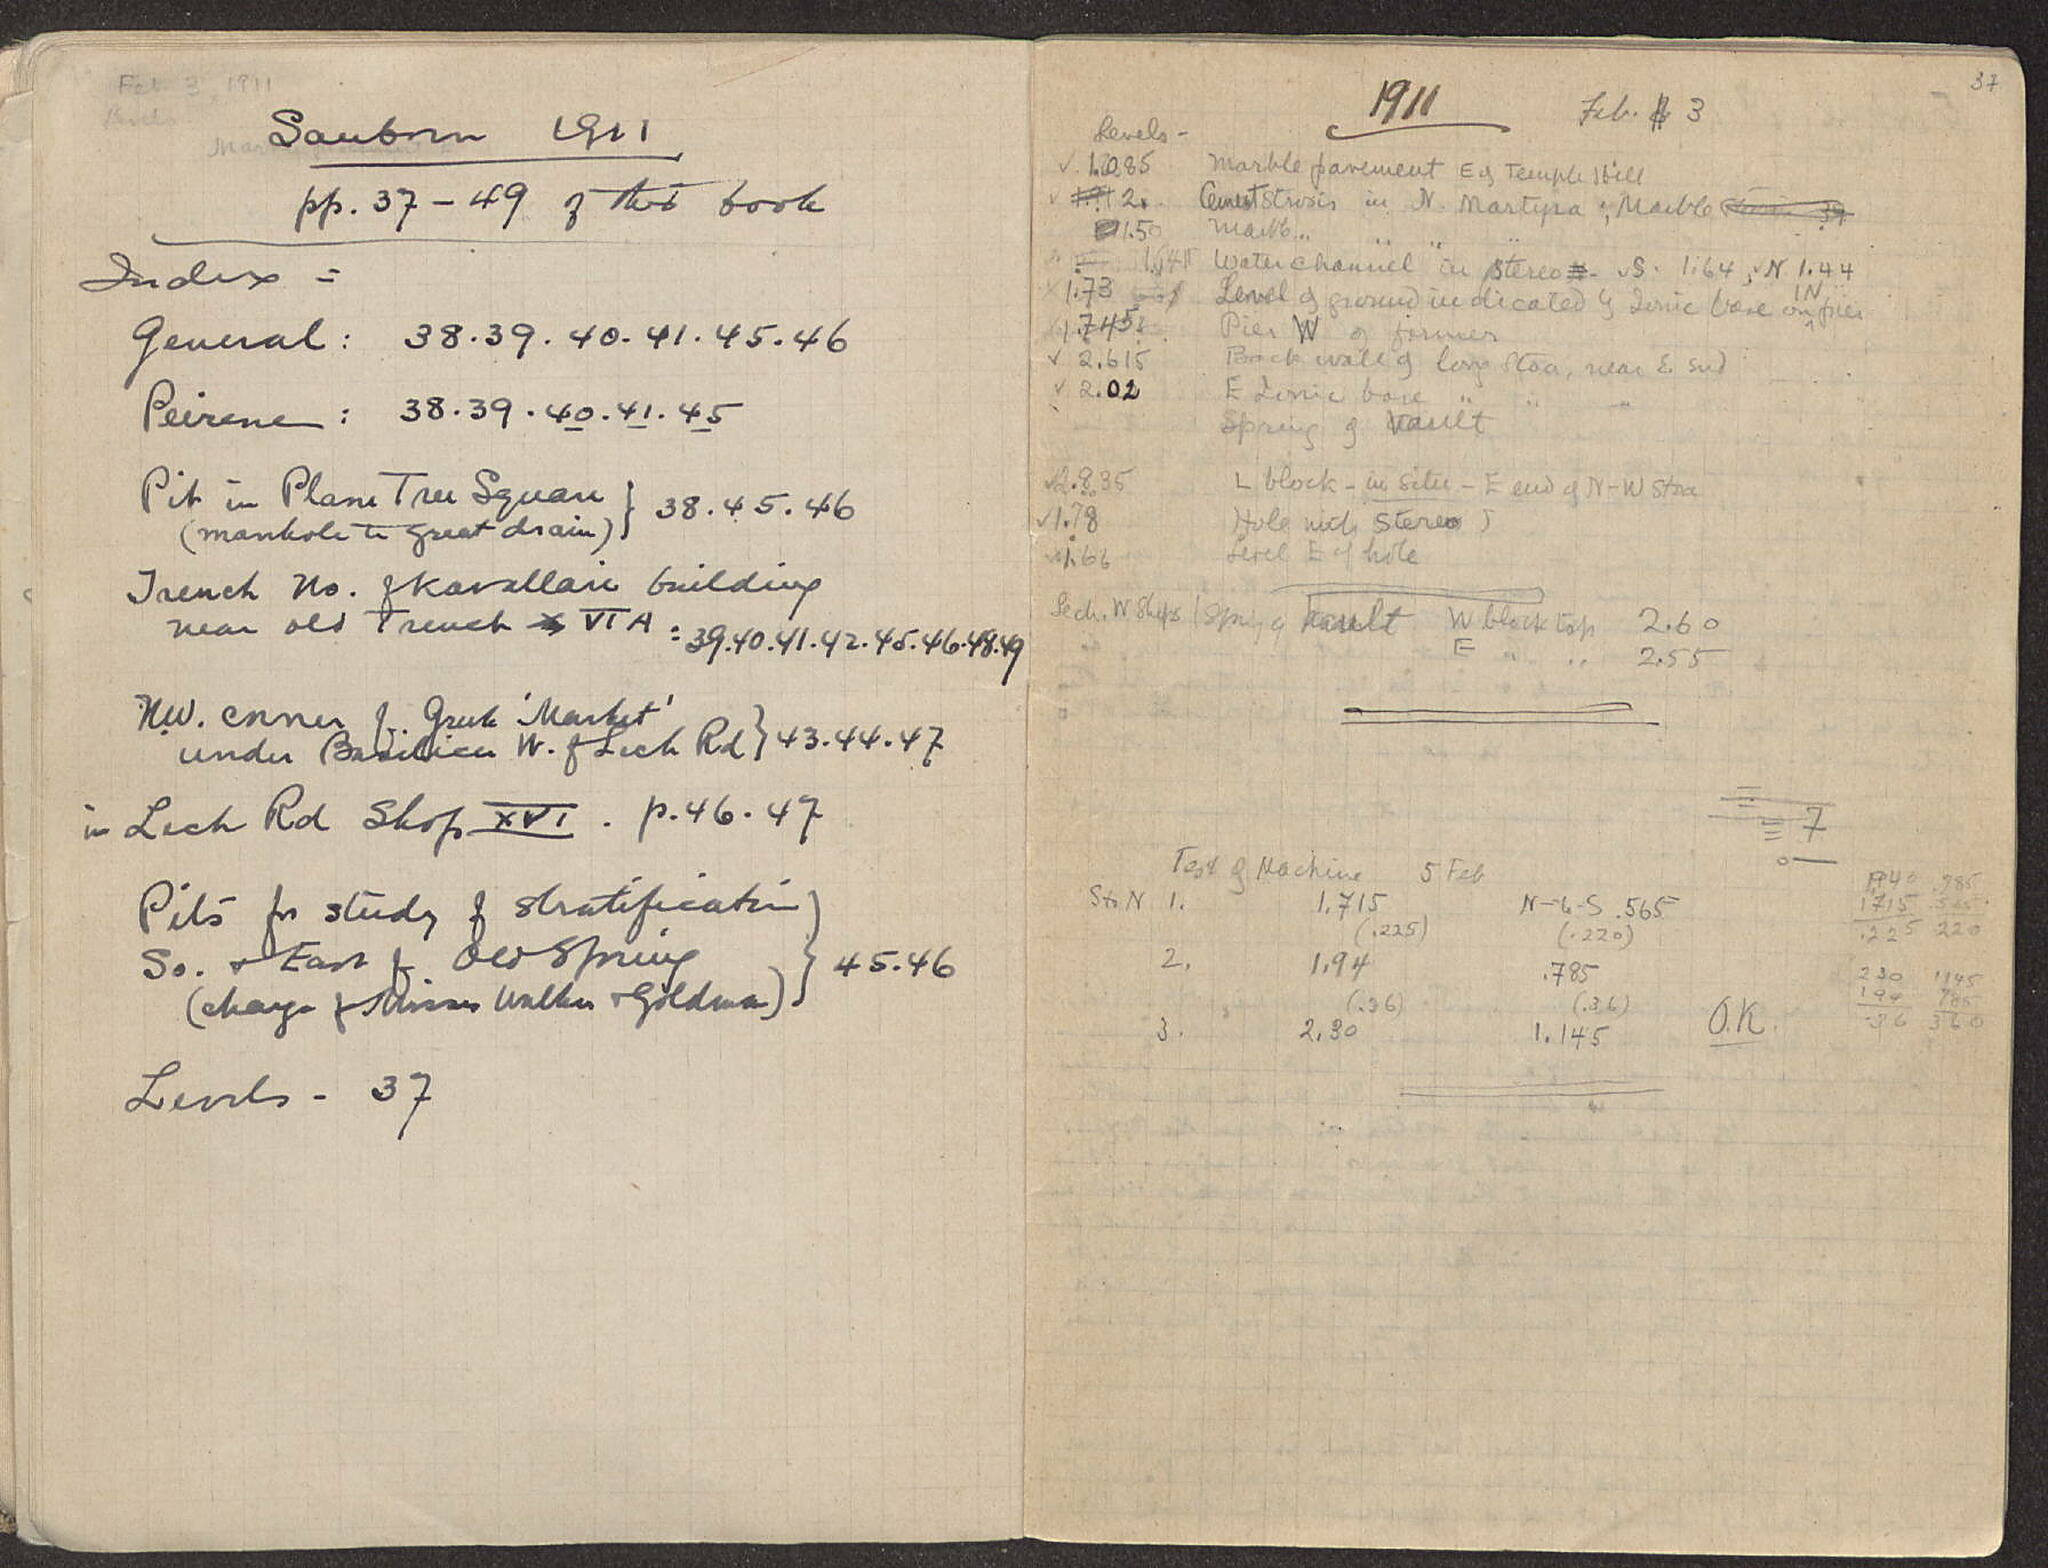 Feb 3 1911
Sanborn 1911
pp. 37 - 49 of this book
Index =
General : 38.39.40.41.45.46
Peirene : 38.39.40.41.45
Pit in Plane Tree Square
(manhole to great drain) } 38.45.46
Trench No. of Kavallari building
near old Trench VI A = 39.40.41.42.45.46.48.49
N.W. corner of Greek 'Market'
under Basilica W. of Lech Rd } 43.44.47
in Lech Rd Shop XVI . p.46.47
Pits for study of stratification
So. & East of Old Spring } 45.46
(charge of Misses Walker & Goldman)
Levels - 37
37
1911 Feb. 3
Levels -
✓ 1.085 Marble pavement E of Temple Hill
✓ 2. Cement Strosis in N. Martyra ; Marble
1.50 Marb.. " " "
Water channel in stereo - ✓ S. 1.64 ; ✓ N 1.44
1.73 Level of ground indicated by Ionic base on IN pier
1.745 Pier W of former
✓ 2.615 Back wall of long Stoa, near E end
✓ 2.02 E Ionic base " " "
Spring of Vault
✓ 2.835 L block - in situ - E end of N-W Stoa
✓ 1.78 Hole with Stereo
✓ 1.66 Level E of hole
Lech. W Shops / Spring of Vault W block top 2.60
E " " 2.55
7
Test of Machine 5 Feb
Sta N 1. 1.715 N-6-S .565
(.225) (.220)
2. 1.94 .785
(.36) (.36)
3. 2.30 1.145 O.K.
1940 .785
1715 .565
.225 220
230 1145
194 785
.36 360